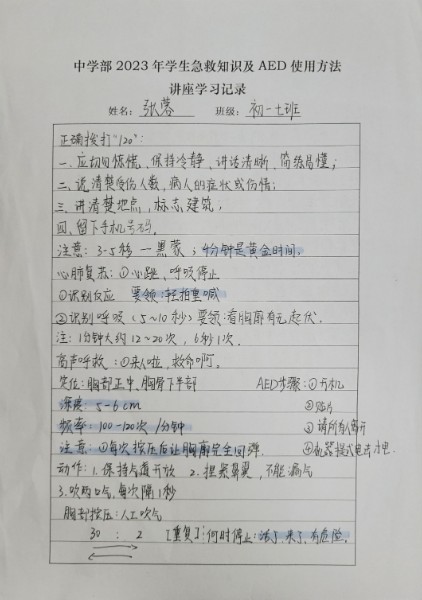 中学部 2023 年学生急救知识及 AED 使用方法
讲座学习记录
姓名: 张蓉 班级: 初一七班
正确拨打“120”:
一、应切勿惊慌、保持冷静、讲话清晰、简练易懂;
二、说清楚受伤人数,病人的症状或伤情;
三、讲清楚地点,标志建筑;
四、留下手机号码.
注意: 3-5秒 一黑蒙; 4分钟是黄金时间.
心肺复苏: ①心跳、呼吸停止
①识别反应 要领:轻拍重喊
②识别呼吸 (5~10秒) 要领:看胸廓有无起伏.
注: 1分钟大约12~20次, 6秒1次.
高声呼救: ①来人啦, 救命啊.
定位:胸部正中、胸骨下半部 AED步骤:①开机
深度: 5-6cm ②贴片
频率: 100-120次/分钟 ③请所有人离开
注意: ①每次按压后让胸廓完全回弹. ④机器提式电击
动作: 1.保持气道开放 2.捏紧鼻翼, 不能漏气
3.吹两口气,每次隔1秒
胸部按压:人工吹气
30 : 2 [重复] 何时停止: 活了、来了、有危险.